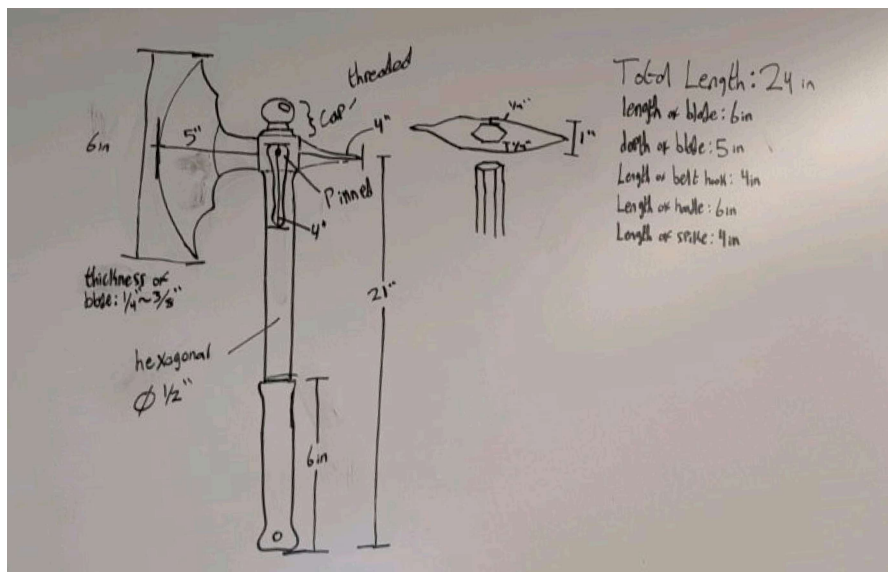 threaded
cap
6in
5"
4"
Pinned
4"
thickness of
blade: 1/4"~3/8"
hexogonal
Ø 1/2"
21"
6in
1/4"
1"
Total Length: 24 in
length of blade: 6in
depth of blade: 5in
Length of belt hook: 4in
Length of handle: 6in
Length of spike: 4in